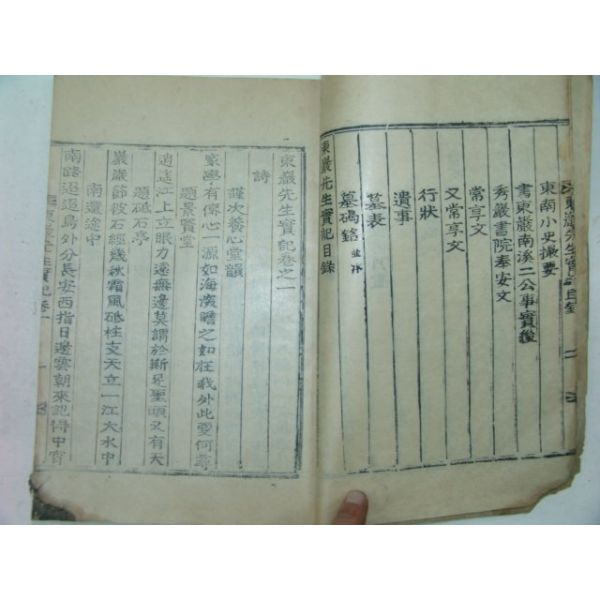 東巖先生實記目錄
東南小史撮要
書東巖南溪二公事實後
秀巖書院奉安文
常享文
又常享文
行狀
遺事
墓表
墓碣銘 並序
東巖先生實記目錄
東巖先生實記卷之一
詩
謹次養心堂韻
家學有傳心一源如海廣瞻之如在我外此更何尋
題景賢堂
逍遙江上立眼力遠無邊莫謂於斯足聖頭又有天
題砥石亭
巖巖節彼石經幾秋霜風砥柱支天立一江大水中
南還途中
南路迢迢鳥外分長安西指日邊雲朝來記得中宵
東巖先生實記卷一